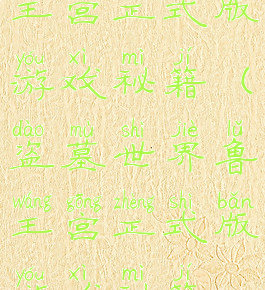 王宫正式版
yóu xì mì jí
游戏秘籍（
dào mù shì jiè lǔ
盗墓世界鲁
wáng gōng zhèng shì bǎn
王宫正式版
yóu xì mì jí